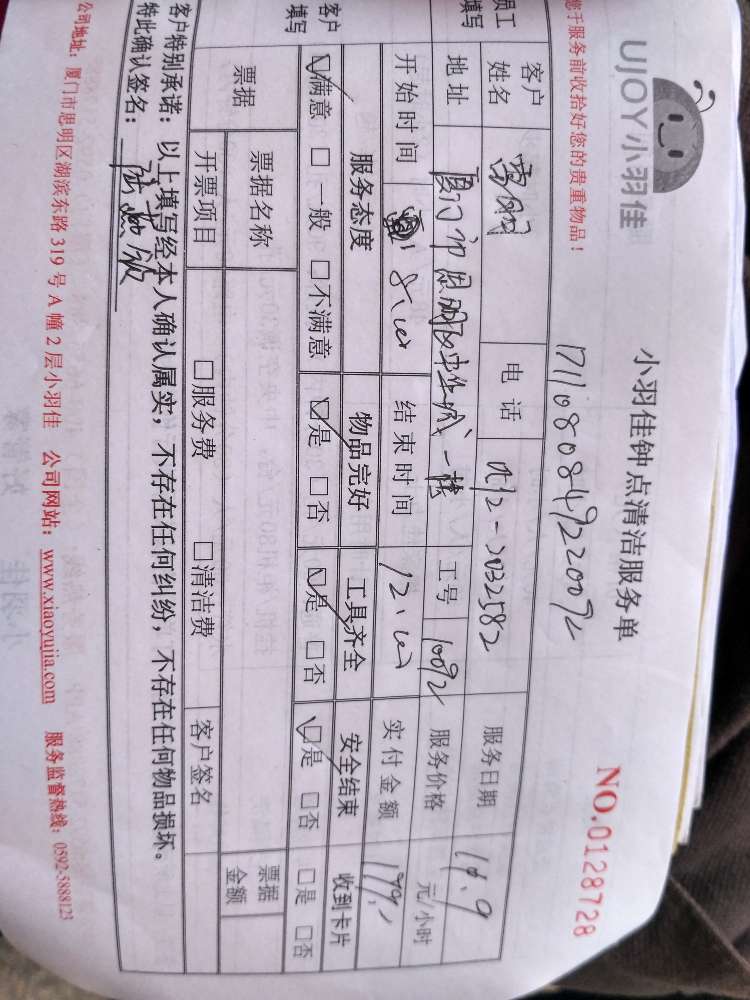 UJOY小羽佳
小羽佳钟点清洁服务单
NO.0128728
您于服务前收拾好您的贵重物品!
员工填写
客户姓名 电话 服务日期 11.9
地址 厦门市思明区 一楼 工号 10092 服务价格 元/小时
开始时间 8:00 结束时间 12:00 实付金额
客户填写
服务态度 物品完好 工具齐全 安全结束 收到卡片
☑满意 □一般 □不满意 ☑是 □否 ☑是 □否 ☑是 □否 □是 □否
票据 票据名称 票据金额
开票项目 □服务费 □清洁费 客户签名
客户特别承诺:以上填写经本人确认属实,不存在任何纠纷,不存在任何物品损坏。
特此确认签名:
公司地址:厦门市思明区湖滨东路 319 号 A 幢 2 层小羽佳 公司网站:www.xiaoyujia.com 服务监督热线:0592-5888123